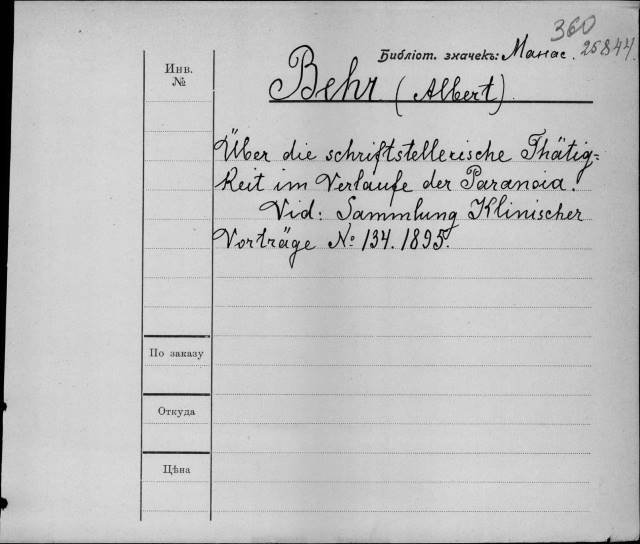 360
Библіот. значекъ: Манас. 25844.
Инв.
№
Behr (Albert)
Über die schriftstellerische Thätig=
keit im Verlaufe der Paranoia.
Vid: Sammlung Klinischer
Vorträge № 134. 1895.
По заказу
Откуда
Цѣна